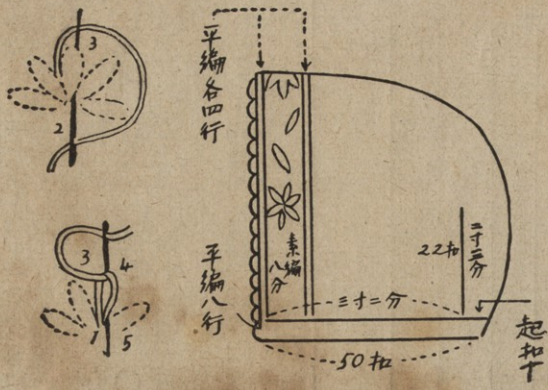 3
2
3
4
1
5
平編各四行
平編八行
素編
八分
22扣
二寸二分
三寸二分
50扣
起扣十